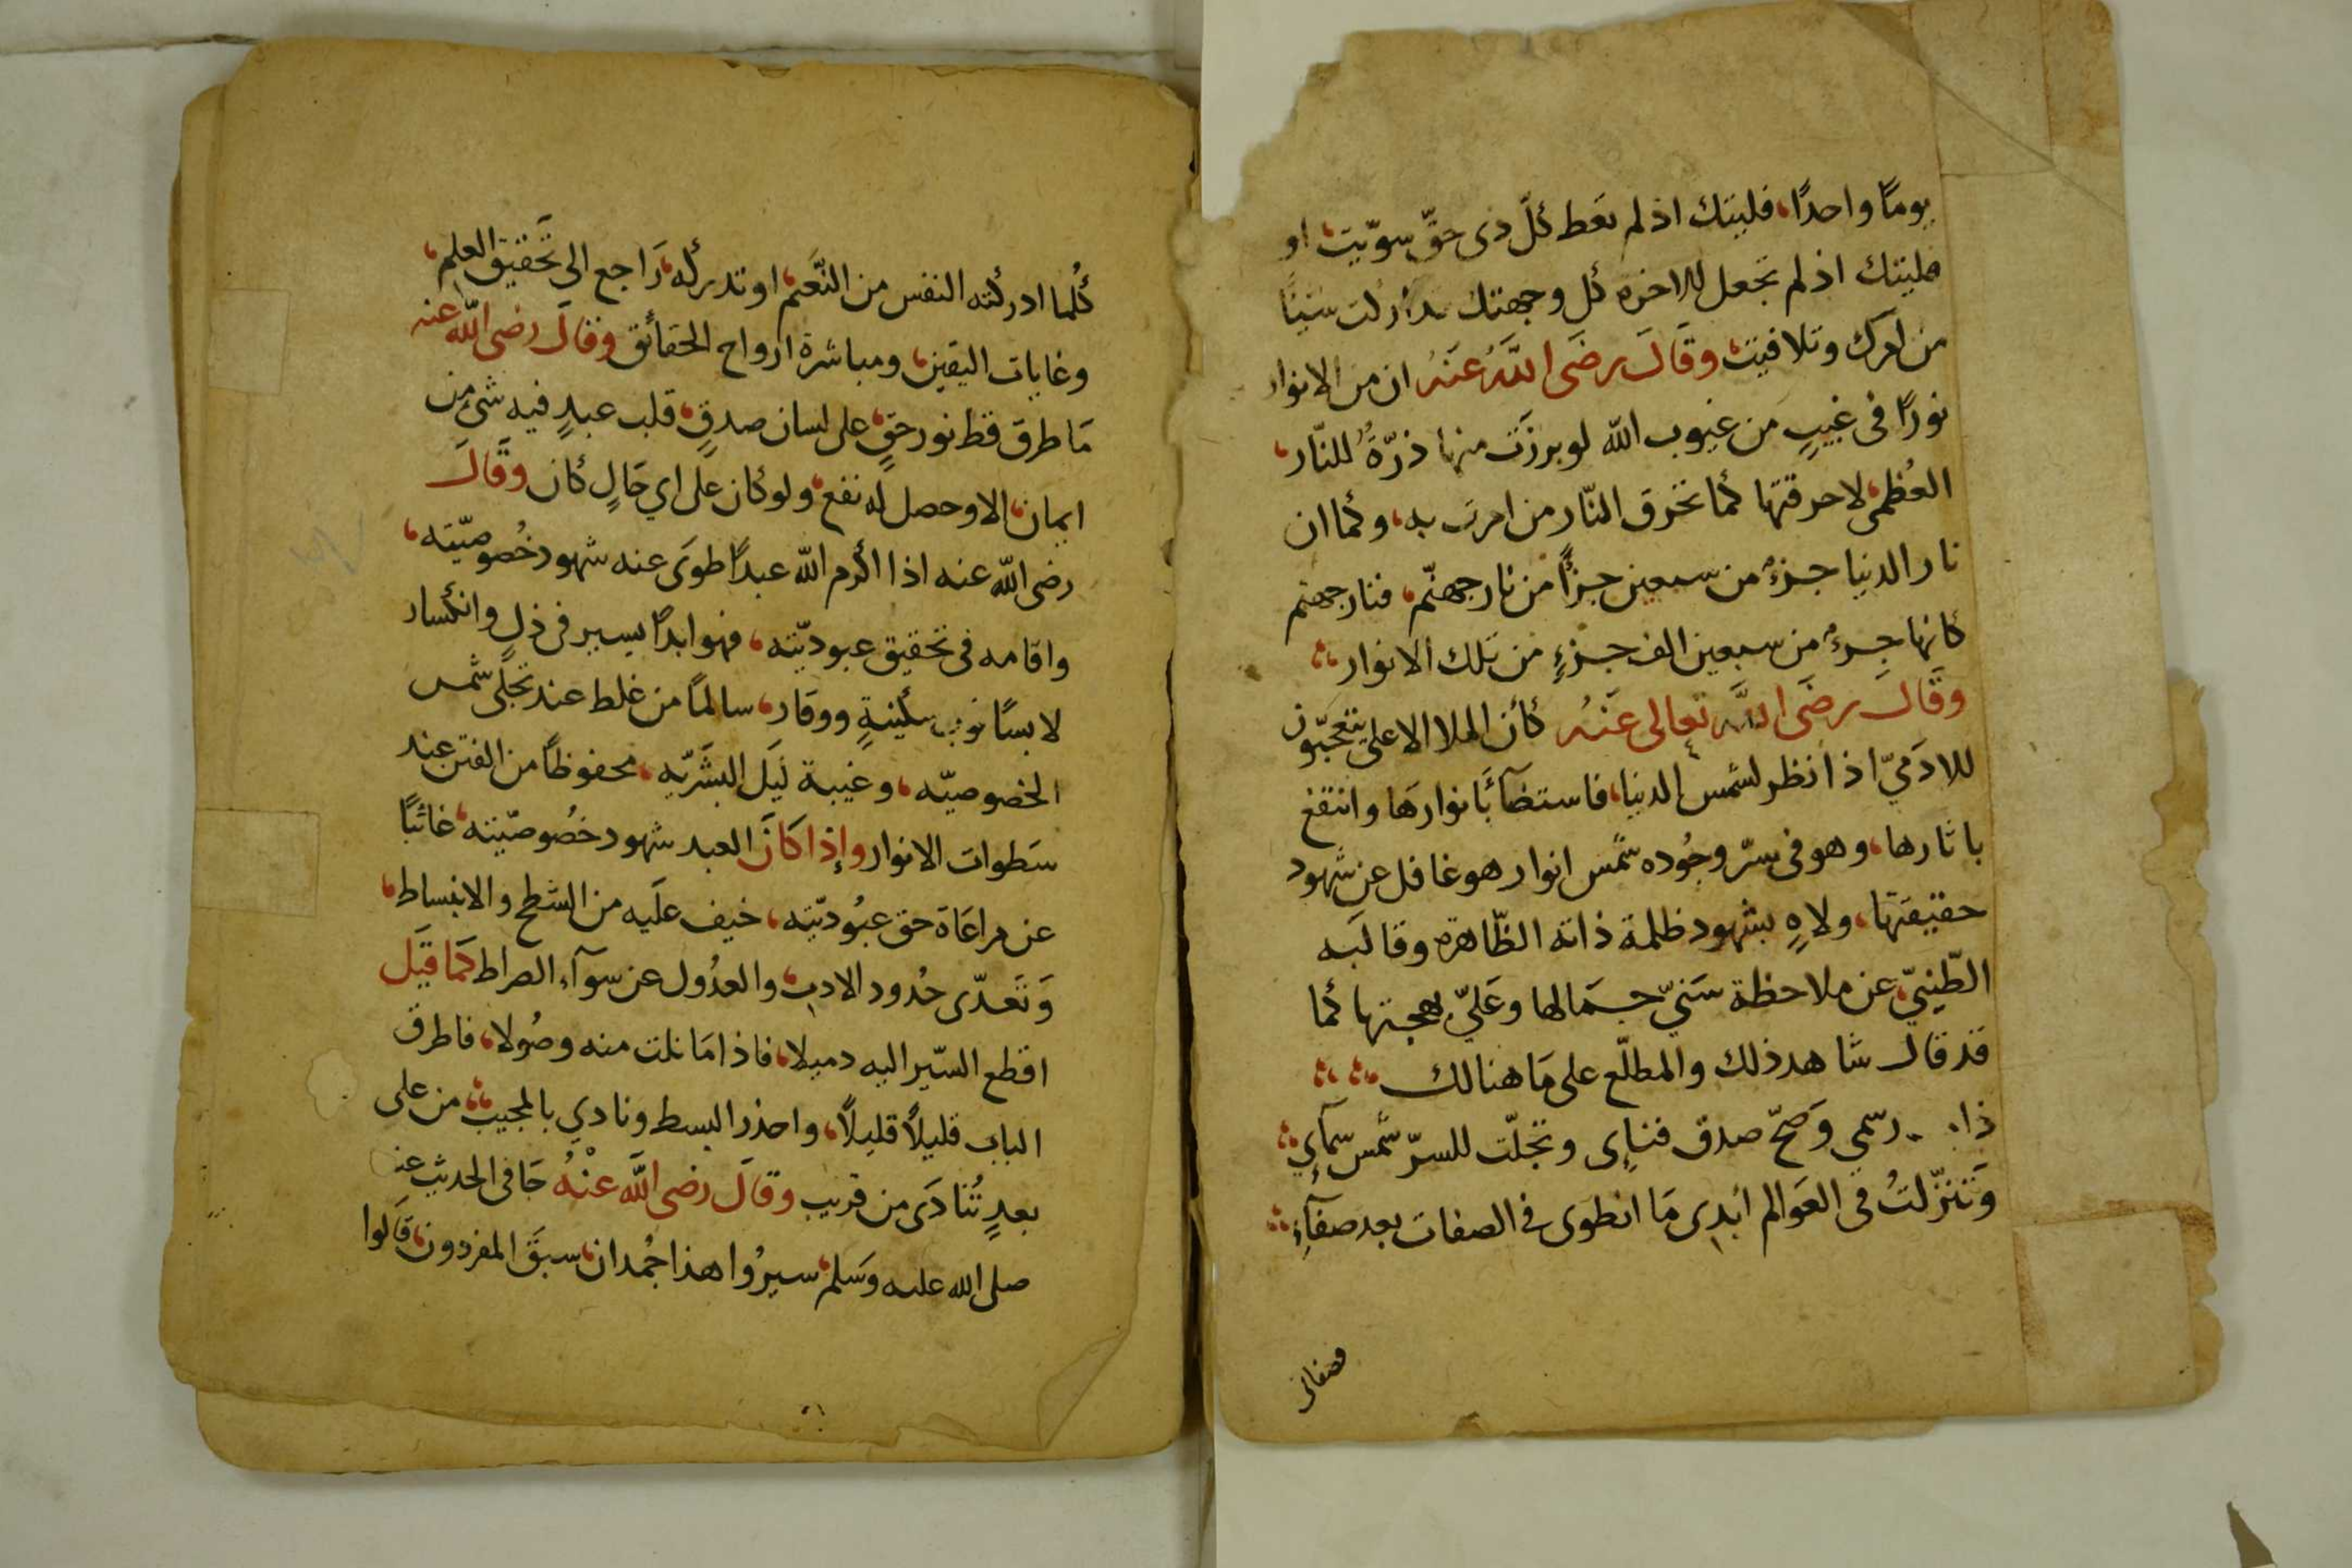 يومًا واحدًا، فليتك اذ لم تعط كلّ ذى حقّ سوّيت، او
فليتك اذ لم تجعل للاخرة كل وجهتك تداركت شيئًا
من امرك وتلافيت، وقَالَ رضَى اللَّهُ عَنْهُ ان من الانوار
نورًا فى غيبٍ من غيوب الله لو برزَت منها ذرّةٌ للنّار،
العُظمى، لاحرقتها كما تحرق النّار من امرت به، وكما ان
نار الدنيا جزءٌ من سبعين جزأً من نار جهنّم، فنار جهنم
كانها جزءٌ من سبعين الف جزءٍ من تلك الانوار،،
وقَالَ رضَى اللَّه تعالى عَنْهُ كأن الملا الاعلى يتعجّبون
للادَميّ اذا نظر لشمس الدنيا، فاستضآءَ بانوارهَا وانتفع
باثارها، وهو فى سرّ وجُوده شمس انوار هو غافل عن شهود
حقيقتها، ولاهٍ بشهود ظلمة ذاته الظّاهرة وقالبَه
الطّينيّ، عن ملاحظة سَنيّ جمَالها وعَليّ بهجتها كما
قد قال شاهد ذلك والمطلّع على مَا هنالك
رسمى وَصَحّ صدق فنايى وتجلّت للسرّ شمس سمآيي
وَتَنزّلتُ فى العَوالم ابدى مَا انطوى فى الصفات بعد صفآء
فصفاتى
كُلما ادركته النفس من النّعَم، او تدركه، رَاجع الى تَحقيق العلم،
وغايات اليقين، ومباشرة ارواح الحقائق وقَالَ رضى اللّه عنه
مَا طرق قط نور حقٍ، على لسان صدقٍ، قلب عبدٍ فيه شئ من
ايمان، الا وحصل له نفع، ولو كان على اي حَالٍ كان وقَالَ
رضى اللّه عنه اذا اكرم اللّه عبدًا طوَى عنه شهود خُصوصّيّته،
واقامه فى تحقيق عبوديّته، فهو ابدًا يسير فى ذلٍ وانكسار
لابسًا ثوب سكينةٍ ووقار، سالمًا من غلط عند تجلّى شمس
الخصوصيّه، وغيبة لَيَل البشَريّه، محفوظًا من الفتن عند
سَطوات الانوار وإذا كَانَ العبد شهود خصُوصيّته، غائبًا
عن مراعَاة حق عبُوديّته، خيف علَيه من الشطح والانبساط،
وَتَعدّى حُدود الادب، والعدُول عن سوآء الصراط كَمَا قيَل
اقطع السّير اليه دميلا، فاذا مَا نلت منه وصُولا، فاطرق
الباب قليلاً قليلاً، واحذر البسط ونادي بالمجيب، من على
بعدٍ تُنادَى من قريب وقَالَ رضى اللَّه عنْهُ جَا فى الحديث عنه
صلى الله عليه وَسَلم، سيرُوا هذا جُمدان، سبقَ المفردون، قَالوا